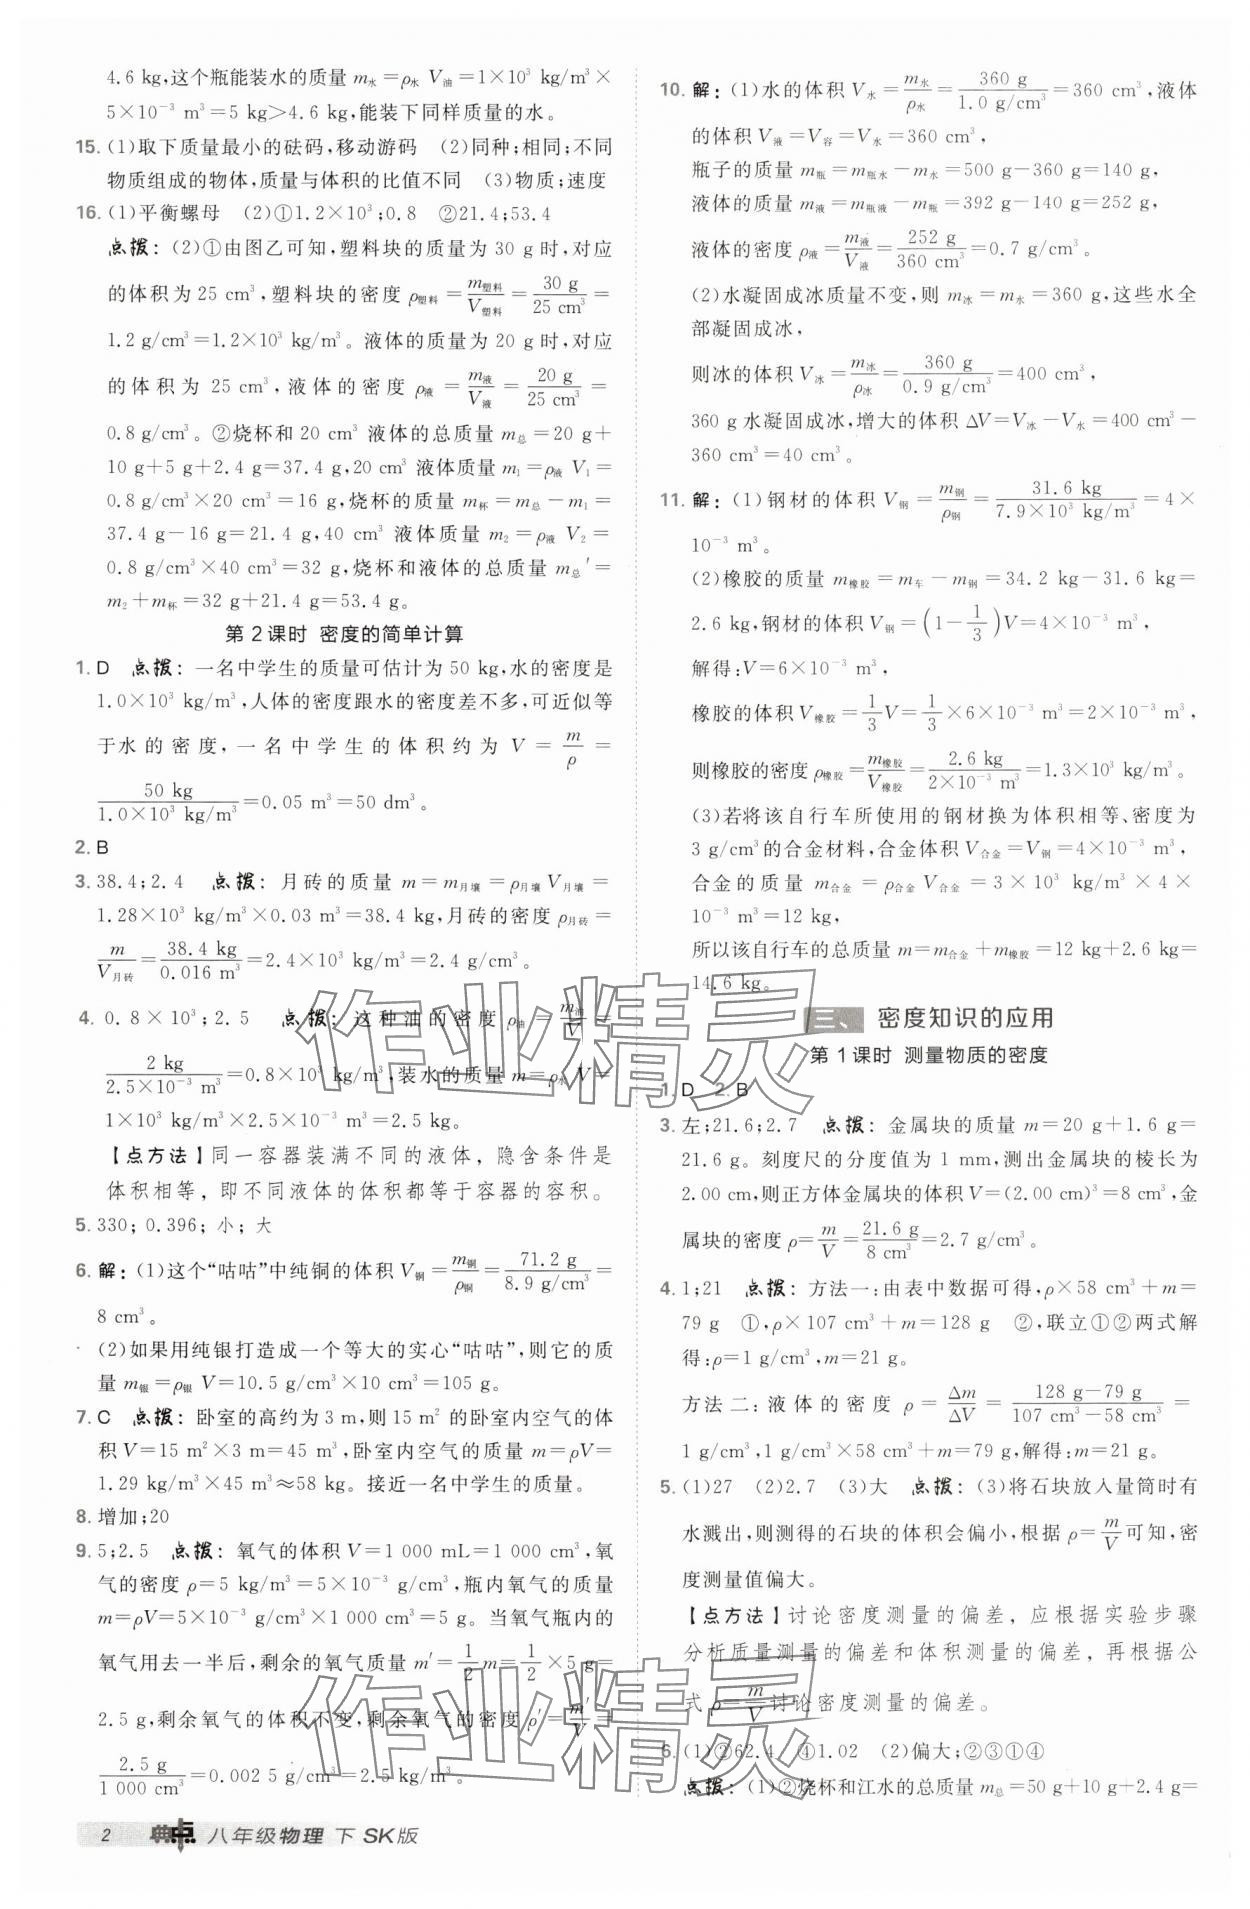 4.6 kg,这个瓶能装水的质量 m水=ρ水 V油=1×10³ kg/m³×
5×10⁻³ m³=5 kg>4.6 kg,能装下同样质量的水。
15. (1)取下质量最小的砝码,移动游码 (2)同种;相同;不同
物质组成的物体,质量与体积的比值不同 (3)物质;速度
16. (1)平衡螺母 (2)①1.2×10³;0.8 ②21.4;53.4
点拨:(2)①由图乙可知,塑料块的质量为 30 g 时,对应
的体积为 25 cm³,塑料块的密度 ρ塑料=m塑料/V塑料=30 g/25 cm³=
1.2 g/cm³=1.2×10³ kg/m³。液体的质量为 20 g 时,对应
的体积为 25 cm³,液体的密度 ρ液=m液/V液=20 g/25 cm³=
0.8 g/cm³。②烧杯和 20 cm³ 液体的总质量 m总=20 g+
10 g+5 g+2.4 g=37.4 g,20 cm³ 液体质量 m₁=ρ液 V₁=
0.8 g/cm³×20 cm³=16 g,烧杯的质量 m杯=m总-m₁=
37.4 g-16 g=21.4 g,40 cm³ 液体质量 m₂=ρ液 V₂=
0.8 g/cm³×40 cm³=32 g,烧杯和液体的总质量 m总′=
m₂+m杯=32 g+21.4 g=53.4 g。
第 2 课时 密度的简单计算
1. D 点拨:一名中学生的质量可估计为 50 kg,水的密度是
1.0×10³ kg/m³,人体的密度跟水的密度差不多,可近似等
于水的密度,一名中学生的体积约为 V=m/ρ=
50 kg/1.0×10³ kg/m³=0.05 m³=50 dm³。
2. B
3. 38.4;2.4 点拨:月砖的质量 m=m月壤=ρ月壤 V月壤=
1.28×10³ kg/m³×0.03 m³=38.4 kg,月砖的密度 ρ月砖=
m/V月砖=38.4 kg/0.016 m³=2.4×10³ kg/m³=2.4 g/cm³。
4. 0.8×10³;2.5 点拨:这种油的密度 ρ油=m油/V=
2 kg/2.5×10⁻³ m³=0.8×10³ kg/m³,装水的质量 m=ρ水 V=
1×10³ kg/m³×2.5×10⁻³ m³=2.5 kg。
【点方法】同一容器装满不同的液体,隐含条件是
体积相等,即不同液体的体积都等于容器的容积。
5. 330;0.396;小;大
6. 解:(1)这个“咕咕”中纯铜的体积 V铜=m铜/ρ铜=71.2 g/8.9 g/cm³=
8 cm³。
(2)如果用纯银打造成一个等大的实心“咕咕”,则它的质
量 m银=ρ银 V=10.5 g/cm³×10 cm³=105 g。
7. C 点拨:卧室的高约为 3 m,则 15 m² 的卧室内空气的体
积 V=15 m²×3 m=45 m³,卧室内空气的质量 m=ρV=
1.29 kg/m³×45 m³≈58 kg。接近一名中学生的质量。
8. 增加;20
9. 5;2.5 点拨:氧气的体积 V=1 000 mL=1 000 cm³,氧
气的密度 ρ=5 kg/m³=5×10⁻³ g/cm³,瓶内氧气的质量
m=ρV=5×10⁻³ g/cm³×1 000 cm³=5 g。当氧气瓶内的
氧气用去一半后,剩余的氧气质量 m′=1/2 m=1/2×5 g=
2.5 g,剩余氧气的体积不变,剩余氧气的密度 ρ′=m′/V=
2.5 g/1 000 cm³=0.002 5 g/cm³=2.5 kg/m³。
10. 解:(1)水的体积 V水=m水/ρ水=360 g/1.0 g/cm³=360 cm³,液体
的体积 V液=V容=V水=360 cm³,
瓶子的质量 m瓶=m瓶水-m水=500 g-360 g=140 g,
液体的质量 m液=m瓶液-m瓶=392 g-140 g=252 g,
液体的密度 ρ液=m液/V液=252 g/360 cm³=0.7 g/cm³。
(2)水凝固成冰质量不变,则 m冰=m水=360 g,这些水全
部凝固成冰,
则冰的体积 V冰=m冰/ρ冰=360 g/0.9 g/cm³=400 cm³,
360 g 水凝固成冰,增大的体积 ΔV=V冰-V水=400 cm³-
360 cm³=40 cm³。
11. 解:(1)钢材的体积 V钢=m钢/ρ钢=31.6 kg/7.9×10³ kg/m³=4×
10⁻³ m³。
(2)橡胶的质量 m橡胶=m车-m钢=34.2 kg-31.6 kg=
2.6 kg,钢材的体积 V钢=(1-1/3)V=4×10⁻³ m³,
解得:V=6×10⁻³ m³,
橡胶的体积 V橡胶=1/3 V=1/3×6×10⁻³ m³=2×10⁻³ m³,
则橡胶的密度 ρ橡胶=m橡胶/V橡胶=2.6 kg/2×10⁻³ m³=1.3×10³ kg/m³。
(3)若将该自行车所使用的钢材换为体积相等、密度为
3 g/cm³的合金材料,合金体积 V合金=V钢=4×10⁻³ m³,
合金的质量 m合金=ρ合金 V合金=3×10³ kg/m³×4×
10⁻³ m³=12 kg,
所以该自行车的总质量 m=m合金+m橡胶=12 kg+2.6 kg=
14.6 kg。
三、密度知识的应用
第 1 课时 测量物质的密度
1. D 2. B
3. 左;21.6;2.7 点拨:金属块的质量 m=20 g+1.6 g=
21.6 g。刻度尺的分度值为 1 mm,测出金属块的棱长为
2.00 cm,则正方体金属块的体积 V=(2.00 cm)³=8 cm³,金
属块的密度 ρ=m/V=21.6 g/8 cm³=2.7 g/cm³。
4. 1;21 点拨:方法一:由表中数据可得,ρ×58 cm³+m=
79 g ①,ρ×107 cm³+m=128 g ②,联立①②两式解
得:ρ=1 g/cm³,m=21 g。
方法二:液体的密度 ρ=Δm/ΔV=128 g-79 g/107 cm³-58 cm³=
1 g/cm³,1 g/cm³×58 cm³+m=79 g,解得:m=21 g。
5. (1)27 (2)2.7 (3)大 点拨:(3)将石块放入量筒时有
水溅出,则测得的石块的体积会偏小,根据 ρ=m/V可知,密
度测量值偏大。
【点方法】讨论密度测量的偏差,应根据实验步骤
分析质量测量的偏差和体积测量的偏差,再根据公
式 ρ=m/V讨论密度测量的偏差。
6. (1)②62.4 ④1.02 (2)偏大;②③①④
点拨:(1)②烧杯和江水的总质量 m总=50 g+10 g+2.4 g=
2 典点 八年级物理 下 SK版
作业精灵
作业精灵